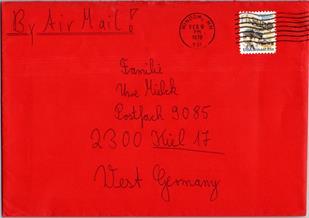 By Air Mail!
1978
Familie
Uwe Mielck
Postfach 9085
2300 Kiel 17
West Germany